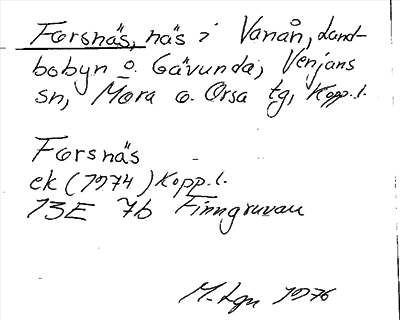 Forsnäs, näs i Vanån, Land-
bobyn o. Gävunda, Venjans
sn, Mora o. Orsa tg, Kopp. l.
Forsnäs
ek (1974) Kopp. l.
13E 7b Finngruvan
M-Lgn 1976